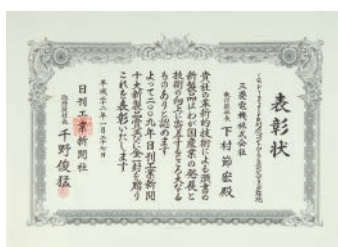 表彰状
三菱電機株式会社
執行役社長 下村節宏殿
貴社の革新的技術による頭書の
新製品はわが国産業の発展と
技術の向上に寄与するところ大なる
ものありと認めます
よって二〇〇九年日刊工業新聞
十大新製品賞並びに金一封を贈り
これを表彰いたします
平成二十二年一月二十七日
日刊工業新聞社
取締役社長 千野俊猛